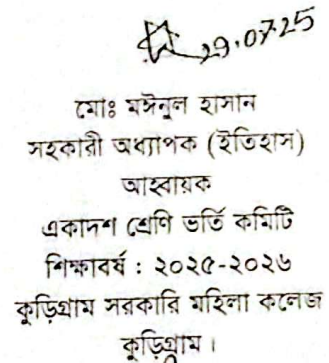 29.07.25
মোঃ মঈনুল হাসান
সহকারী অধ্যাপক (ইতিহাস)
আহবায়ক
একাদশ শ্রেণি ভর্তি কমিটি
শিক্ষাবর্ষ : ২০২৫-২০২৬
কুড়িগ্রাম সরকারি মহিলা কলেজ
কুড়িগ্রাম।